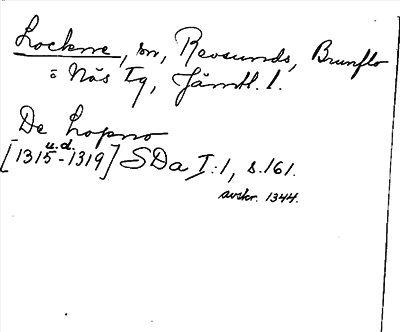 Lockne, sn, Revsunds, Brunflo
o Näs tg, Jämtl. l.
De Lopno
u.d.
[1315-1319] SDa I:1, s.161.
avskr. 1344.